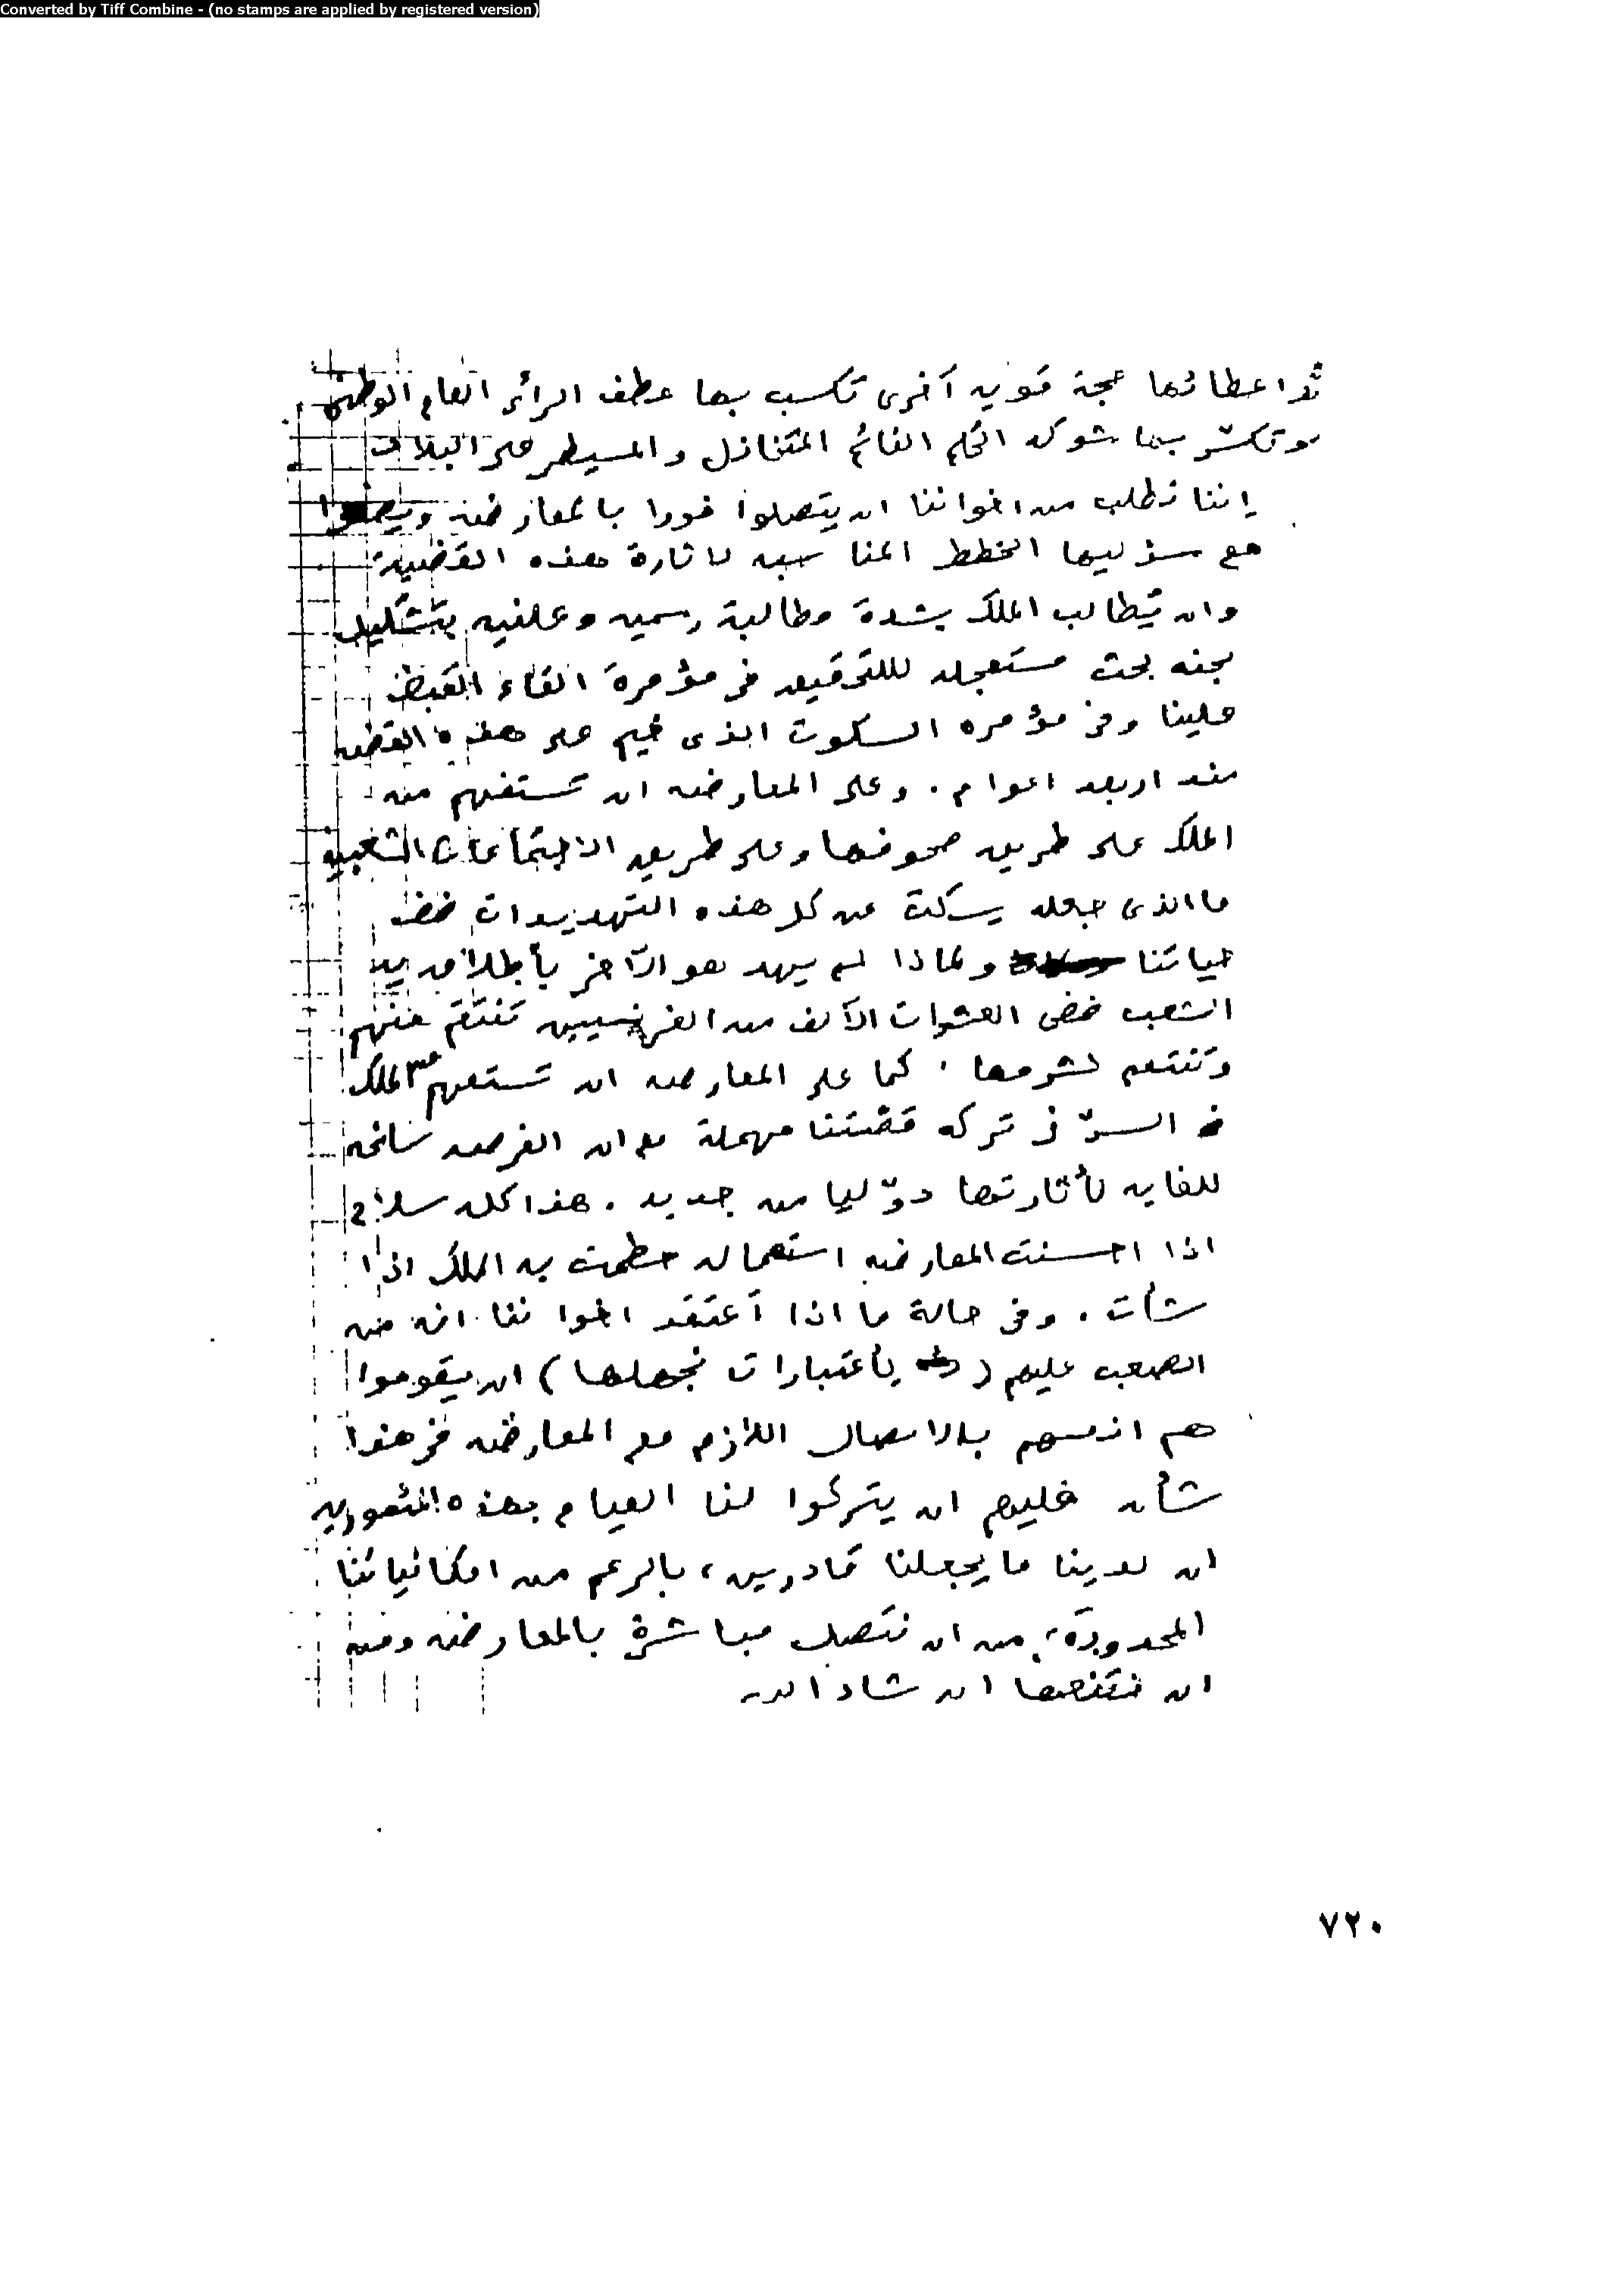 Converted by Tiff Combine - (no stamps are applied by registered version)
اعطائها حجة قويه أخرى تكسب بها عطف الرأى العام الوطنى
وتكسّر بها شوكة الحكم القائم المتخاذل والمسيطر على البلاد
إننا نطلب من اخواننا ان يتصلوا فورا بالمعارضه
مع مسؤليها الخطط المناسبه لاثارة هذه القضيه
وان تطالب الملك بشدة مطالبة رسميه وعلنيه بتشكيل
لجنه بحث مستعجله للتحقيق فى مؤمرة القاء القبض
علينا وفى مؤمره السكوت الذى خيم على هذه القضيه
منذ اربعه اعوام. وعلى المعارضه ان تستفهم من
الملك على طريق صحوفها وعلى طريق الاجتماعات الشعبيه
ما الذى جعله يسكت عن كل هذه التهديدات ضد
حياتنا ولماذا لم يهدد هو الآخر بأطلاق يد
الشعب ضد العشرات الآلف من الفرنسيين تنتقم منهم
وتنتقم لشرفها، كما على المعارضه ان تستفهم الملك
السرّ فى تركه قضيتنا مهملة مع ان الفرصه سانحه
للغايه لأثارتها دوّليا من جديد. هذا كله سلاح
اذا احسنت المعارضه استعماله حطمت به الملك اذا
شأت. وفى حالة ما اذا أعتقد اخواننا انه من
الصعب عليهم (بأعتبارات نجهلها) ان يقوموا
هم انفسهم بالاتصال اللازم مع المعارضه فى هذا
شأن فعليهم ان يتركوا لنا القيام بهذه المأموريه
ان لدينا ما يجعلنا قادرين، بالرغم من امكانياتنا
المحدودة، من ان نتصل مباشرة بالمعارضه ومن
ان نقنعها ان شاء الله
٧٢٠